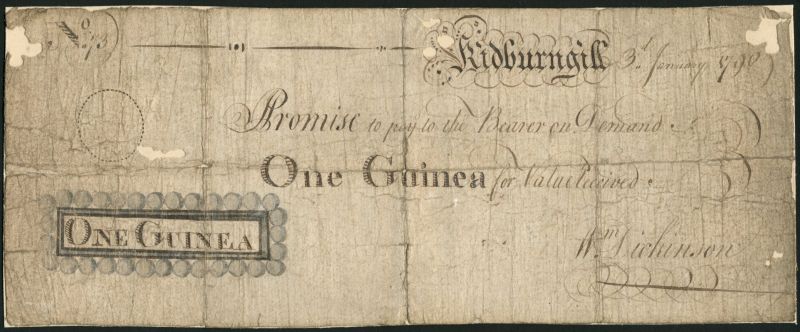 No
Kidburngill 3d January 1790
Promise to pay to the Bearer on Demand
One Guinea for Value Received
ONE GUINEA
Wm Dickinson